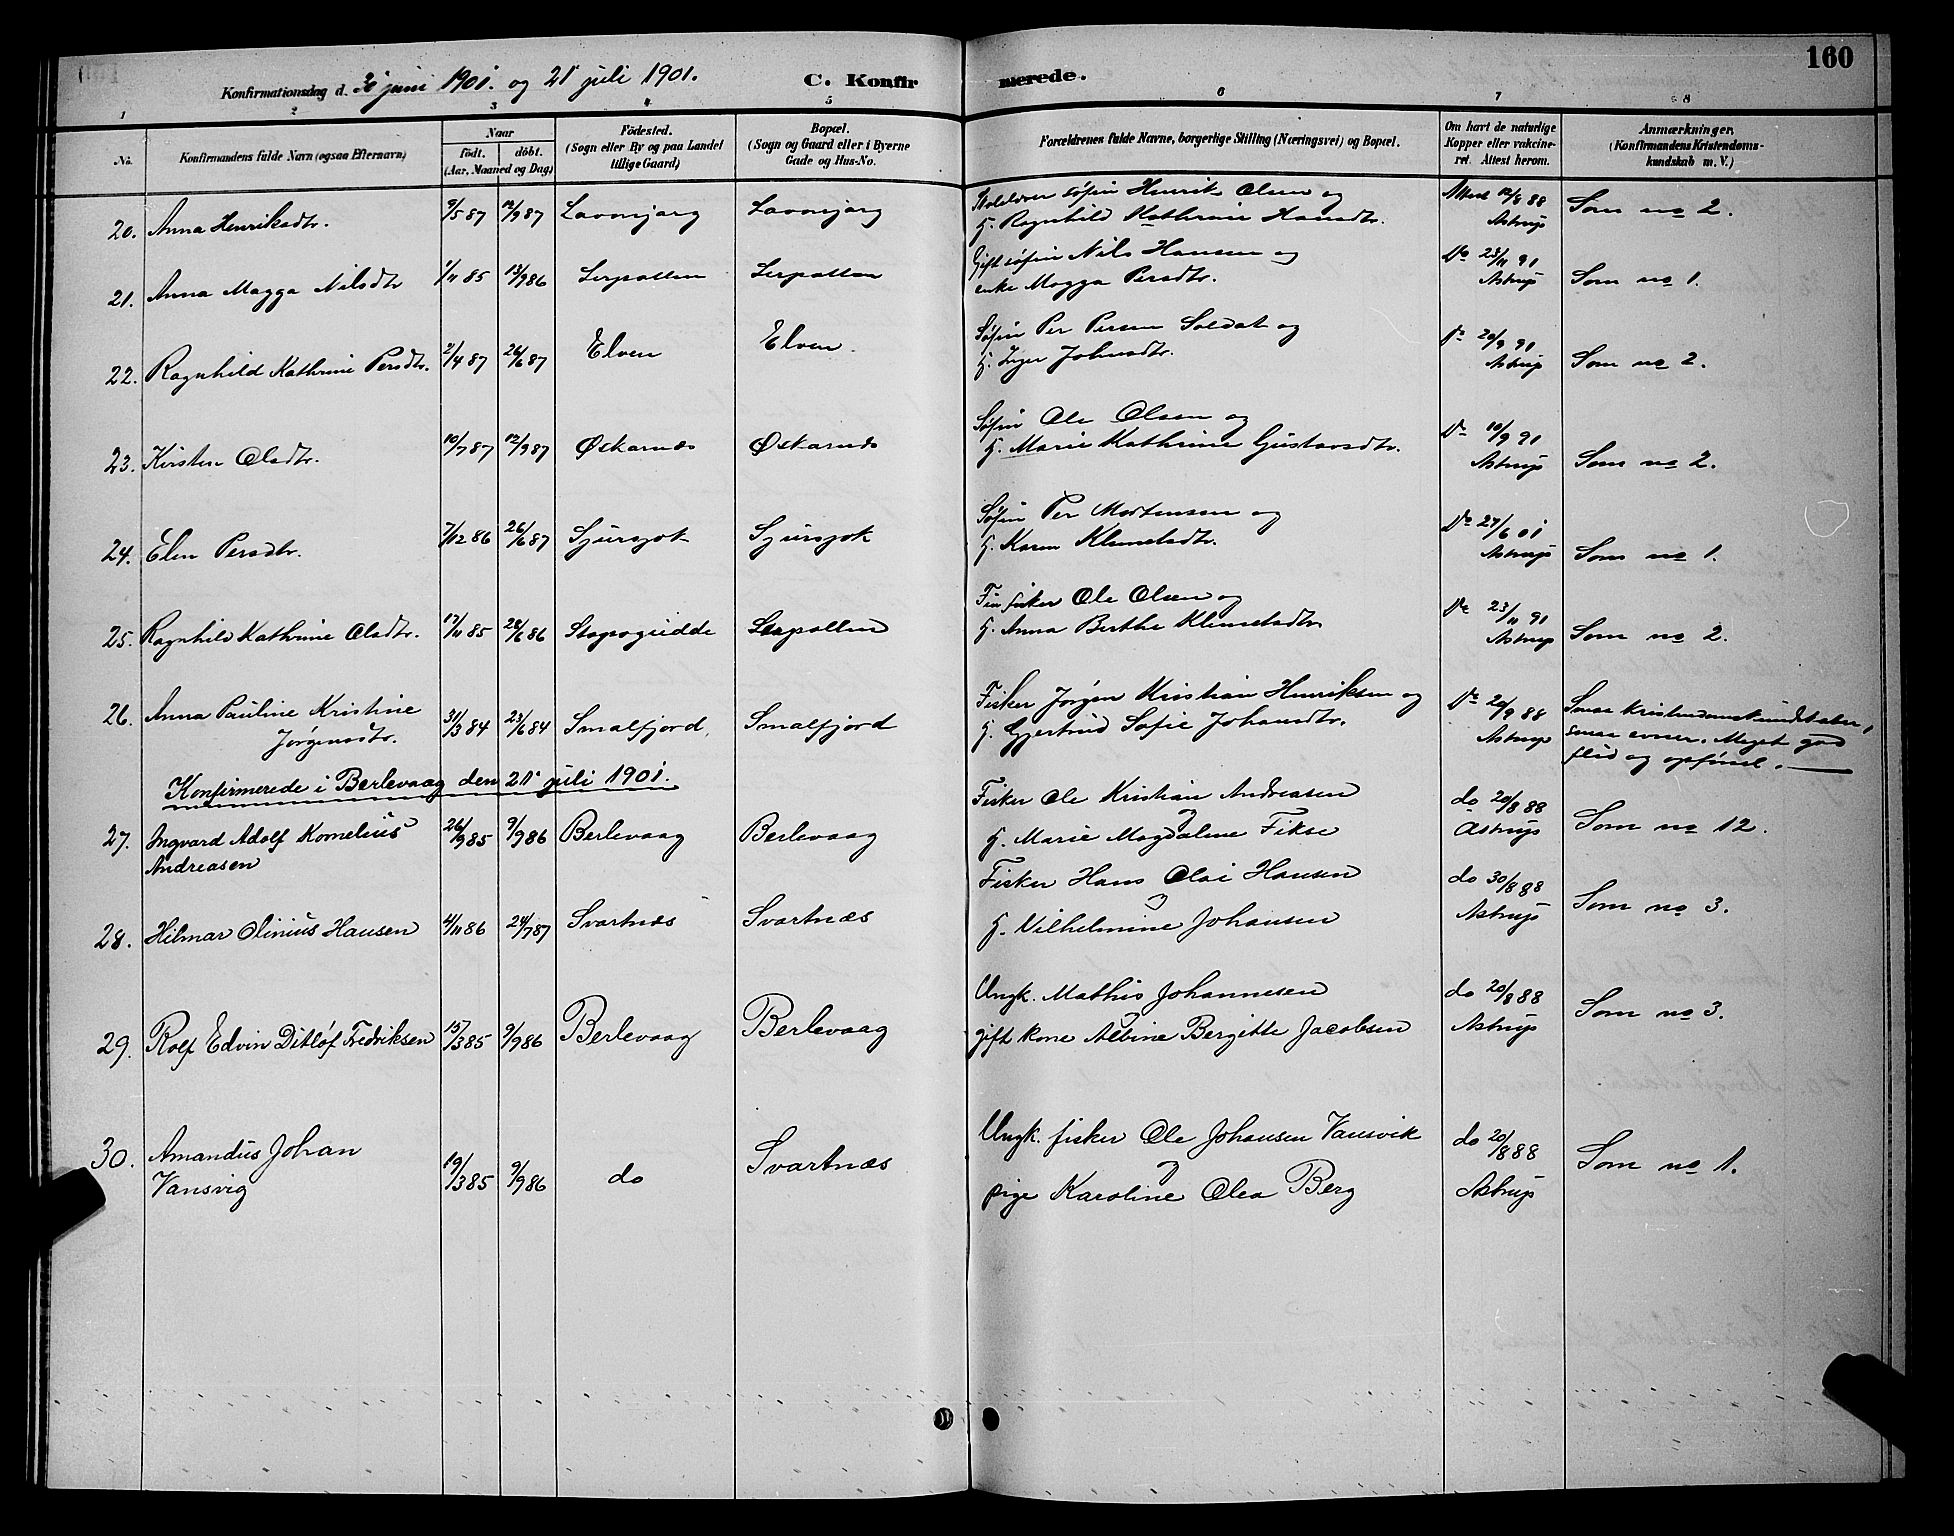 160
Konfirmationsdag d. 30 juni 1901. og 21 juli 1901. C. Konfirmerede.
1 2 3 4 5 6 7 8
No. Konfirmandens fulde Navn (ogsaa Efternavn) Naar födt. döbt. (Aar, Maaned og Dag) Födested. (Sogn eller By og paa Landet tillige Gaard) Bopæl. (Sogn og Gaard eller i Byerne Gade og Hus-No. Forældrenes fulde Navne, borgerlige Stilling (Næringsvei) og Bopæl. Om havt de naturlige Kopper eller vakcineret. Attest herom. Anmærkninger. (Konfirmandens Kristendomskundskab m. V.)
20. Anna Henriksdtr. 9/5 87 12/9 87 Lavonjarg Lavonjarg
Søfin Henrik Olsen og
H. Ragnhild Kathrine Hansdtr. Attest 12/8 88 Astrup Som no 2.
21. Anna Magga Nilsdtr 1/11 85 13/9 86 Lerpollen Lerpollen
Gift søfin Nils Hansen og
enke Magga Persdtr. Do 23/11 91 Astrup Som no 1.
22. Ragnhild Kathrine Persdtr. 2/4 87 26/6 87 Elven Elven.
Søfin Per Persen Soldat og
H. Inger Johnsdtr. Do 20/9 91 Astrup Som no 2.
23. Kirsten Olsdtr. 10/7 87 12/9 87 Øskarnæs Øskarnæs
Søfin Ole Olsen og
H. Marie Kathrine Gustavsdtr. Do 10/9 91 Astrup Som no 2.
24. Elen Persdtr. 7/12 86 26/6 87 Sjursjok Sjursjok
Søfin Per Mortensen og
H. Karen Klemetsdtr. Do 27/6 01 Astrup Som no 1.
25. Ragnhild Kathrine Olsdtr. 17/11 85 28/6 86 Stapogiedde Lerpollen
Fin fisker Ole Olsen og
H. Anna Berthe Klemetsdtr Do 23/11 91 Astrup Som no 2.
26. Anna Pauline Kristine
Jørgensdtr. 31/3 84 23/6 84 Smalfjord, Smalfjord
Fisker Jørgen Kristian Henriksen og
H. Gjertrud Sofie Johansdtr. Do 20/9 88 Astrup
Smaa Kristendomskundskaber,
smaa evner. Meget god
flid og opførsel.
Konfirmerede i Berlevaag den 21 juli 1901.
27. Ingvard Adolf Kornelius
Andreasen 26/9 85 9/9 86 Berlevaag Berlevaag
Fisker Ole Kristian Andreasen
og
H. Marie Magdalene Fikse do 20/8 88 Astrup Som no 12.
28. Hilmar Olinius Hansen 4/11 86 24/7 87 Svartnæs Svartnæs
Fisker Hans Olai Hansen
og
H. Vilhelmine Johansen do 30/8 88 Astrup Som no 3.
29. Rolf Edvin Ditløf Fredriksen 15/3 85 9/9 86 Berlevaag Berlevaag
Ungk. Mathis Johannesen
og
gift kone Albine Bergitte Jacobsen do 20/8 88 Astrup Som no 3.
30. Amandus Johan
Vansvig 19/3 85 9/9 86 do Svartnæs
Ungk. fisker Ole Johansen Vansvik
og
pige Karoline Olea Berg do 20/8 88 Astrup Som no 1.